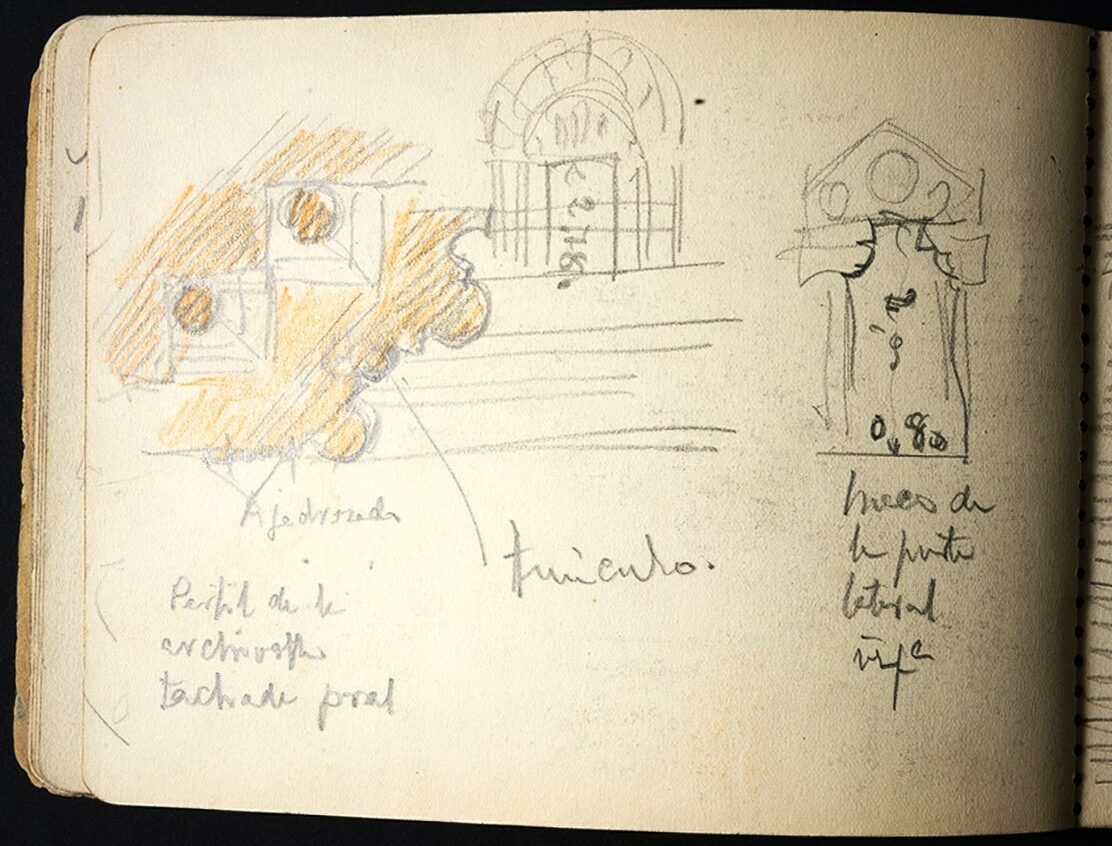 2,78
0,80
Ajedrezado
funículo.
Perfil de la
archivolta
fachada pral
hueco de
la puerta
lateral
izqª